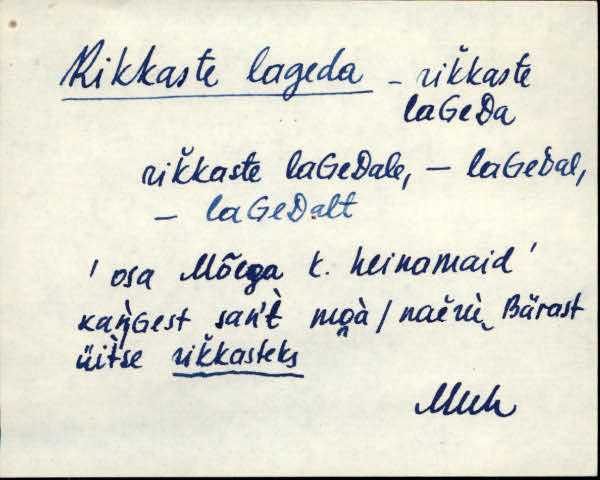 Rikkaste lageda – rikkaste
laGeDa
rikkaste laGeDale, – laGeDal,
– laGeDalt
' osa Mõega k. heinamaid '
kaŋGest san't maà / naèrù Bärast
üitse rikkasteks
Muh